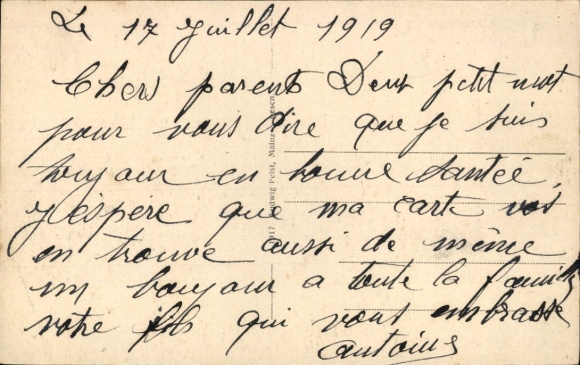 Le 17 Juillet 1919
Chers parents Deux petit mot
pour vous dire que je suis
toujour en bonne santée,
J'éspére que ma carte vos
en trouve aussi de même
un boujour a toute la famille
votre fils qui vous embrasse
Antoine
1917 Ludwig Feist, Mainz